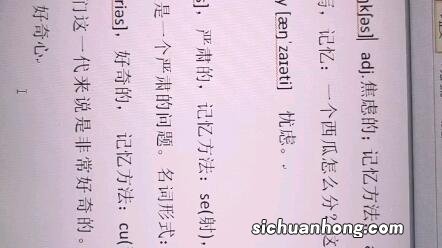 ŋkʃəs] adj.焦虑的；记忆方法
，记忆：一个西瓜怎么分？这
y [æŋˈzaɪəti] 忧虑。
s]，严肃的，记忆方法：se(射)，
是一个严肃的问题。名词形式：
riəs]，好奇的，记忆方法：cu(
们这一代来说是非常好奇的。
好奇心
sichuanhong.com